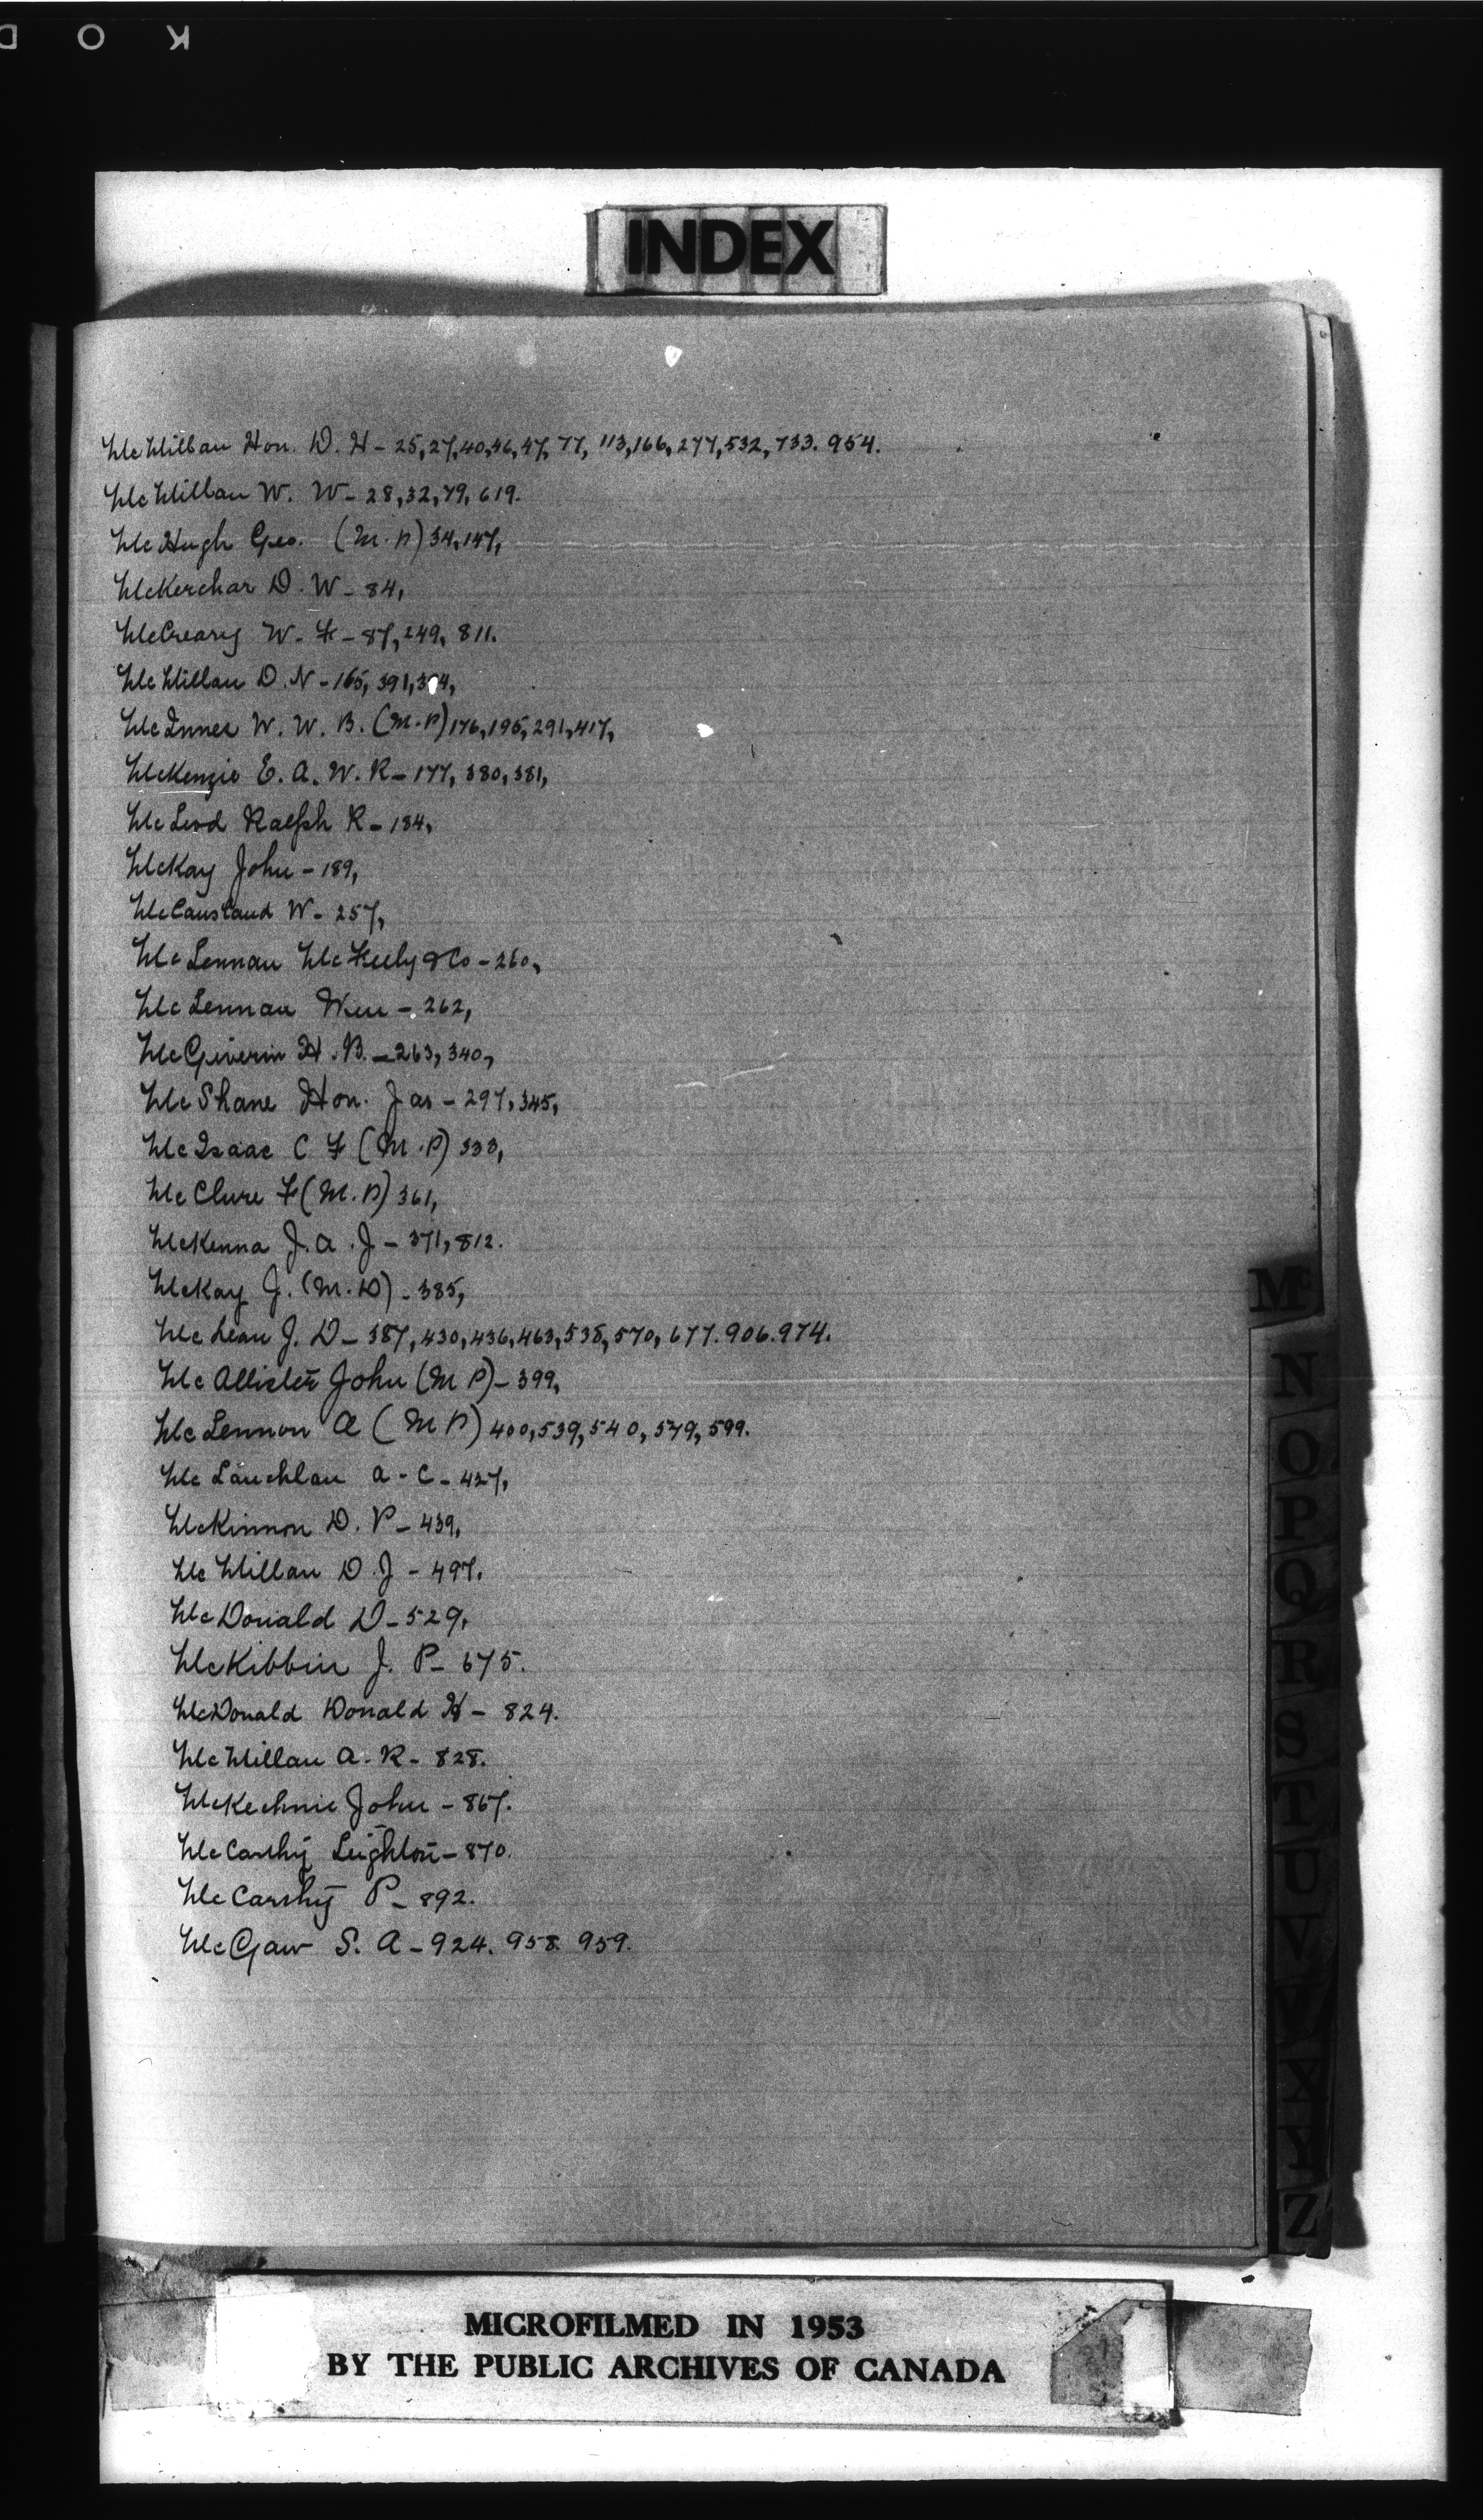 INDEX
McMillan Hon. D. H - 25, 27, 40, 46, 47, 77, 113, 166, 277, 532, 733. 954.
McMillan W. W - 28, 32, 79, 619.
McHugh Geo. (M.P) 34, 147,
McKerchar D. W - 84,
McCreary W. F - 87, 249, 811.
McMillan D. N - 165, 391,
McInnes W. W. B. (M.P) 176, 195, 291, 417,
McKenzie E. A. W. R - 177, 380, 381,
McLeod Ralph R - 184,
McKay John - 189,
McCausland W - 257,
McLennan McFeely & Co - 260,
McLennan Wm - 262,
McGiverin H. B. - 263, 340,
McShane Hon. Jas - 297, 345,
McIsaac C F (M.P) 333,
McClure F (M.P) 361,
McKenna J. A. J - 371, 812.
McKay J. (M.D) - 385,
McLean J. D - 387, 430, 436, 463, 538, 570, 677. 906. 974.
McAllister John (M P) - 399,
McLennon A (M P) 400, 539, 540, 579, 599.
McLauchlan A - C - 427,
McKinnon D. P - 439,
McMillan D. J - 497.
McDonald D - 529,
McKibbin J. P - 675.
McDonald Donald H - 824.
McMillan A. R - 828.
McKechnie John - 867.
McCarthy Leighton - 870.
McCarthy P - 892.
McGaw S. A - 924. 958. 959.
Mc
N
O
P
Q
R
S
T
U
V
W
X
Y
Z
MICROFILMED IN 1953
BY THE PUBLIC ARCHIVES OF CANADA